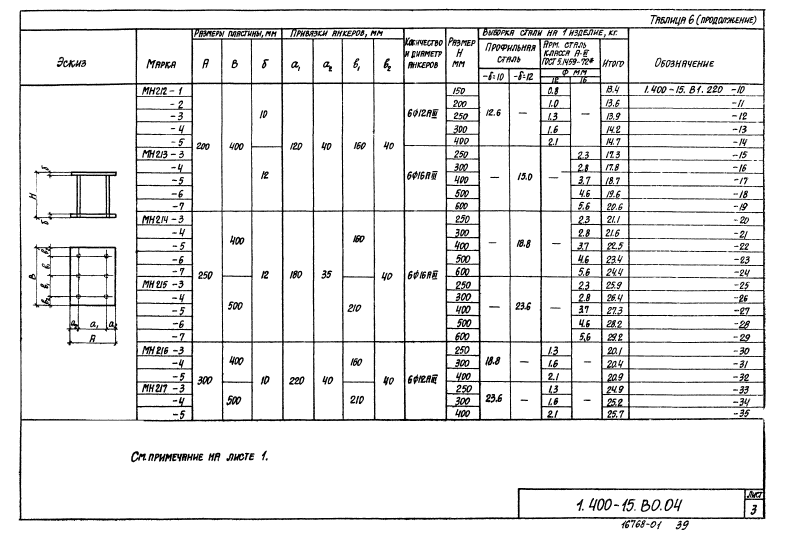 Таблица 6 (продолжение)
Эскиз Марка Размеры пластины, мм Привязки анкеров, мм Количество и диаметр анкеров Размер H мм Выборка стали на 1 изделие, кг. Обозначение
A B б a₁ a₂ b₁ b₂ Профильная сталь Арм. сталь класса А-III ГОСТ 5.1459-72* Итого
-б=10 -б=12 Ф мм
12 16
МН212-1 200 400 10 120 40 160 40 6Ф12АIII 150 12.6 — 0.8 — 13.4 1.400-15.В1.220 -10
-2 200 1.0 13.6 -11
-3 250 1.3 13.9 -12
-4 300 1.6 14.2 -13
-5 400 2.1 14.7 -14
МН213-3 12 6Ф16АIII 250 — 15.0 — 2.3 17.3 -15
-4 300 2.8 17.8 -16
-5 400 3.7 18.7 -17
-6 500 4.6 19.6 -18
-7 600 5.6 20.6 -19
МН214-3 250 400 12 180 35 160 40 6Ф16АIII 250 — 18.8 — 2.3 21.1 -20
-4 300 2.8 21.6 -21
-5 400 3.7 22.5 -22
-6 500 4.6 23.4 -23
-7 600 5.6 24.4 -24
МН215-3 500 210 250 — 23.6 — 2.3 25.9 -25
-4 300 2.8 26.4 -26
-5 400 3.7 27.3 -27
-6 500 4.6 28.2 -28
-7 600 5.6 29.2 -29
МН216-3 300 400 10 220 40 160 40 6Ф12АIII 250 18.8 — 1.3 — 20.1 -30
-4 300 1.6 20.4 -31
-5 400 2.1 20.9 -32
МН217-3 500 210 250 23.6 — 1.3 — 24.9 -33
-4 300 1.6 25.2 -34
-5 400 2.1 25.7 -35
б
H
б
B
b₂
b₁
b₁
b₂
a₂ a₁ a₂
A
См. примечание на листе 1.
1.400-15.В0.04
Лист
3
16768-01 39